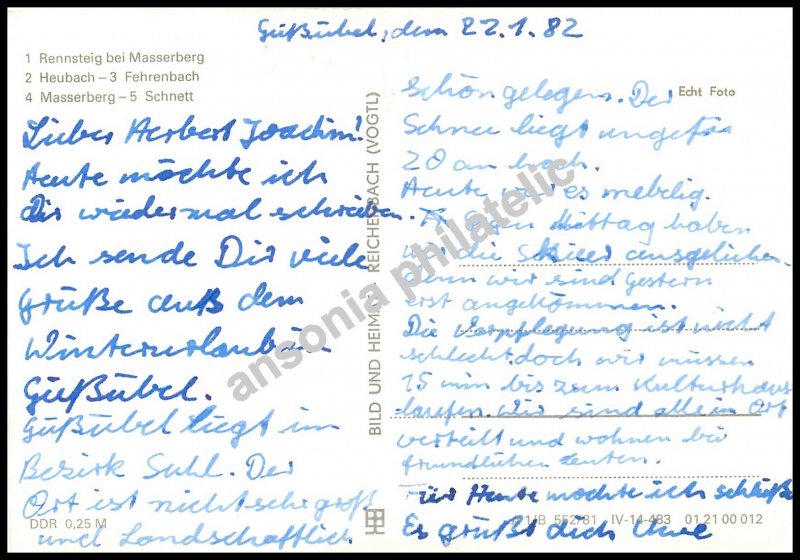 Güßübel, dem 22.1.82
1 Rennsteig bei Masserberg
2 Heubach – 3 Fehrenbach
4 Masserberg – 5 Schnett
Lieber Herbert Joachim!
Heute möchte ich
Dir wiedermal schreiben.
Ich sende Dir viele
Grüße auß dem
Winterurlaub in
Güßübel.
Güßübel liegt im
Bezirk Suhl. Der
Ort ist nicht sehr groß
und Landschaftlich
DDR 0,25 M
BILD UND HEIMAT REICHENBACH (VOGTL)
Echt Foto
schön gelegen. Der
Schnee liegt ungefär
20 cm hoch.
Heute war es nebelig.
Gegen Mittag haben
wir die Skier ausgeliehen
denn wir sind Gestern
erst angekommen.
Die Verpflegung ist nicht
schlecht doch wir müssen
15 min bis zum Kulturhaus
laufen. Wir sind alle im Ort
verteilt und wohnen bei
freundlichen Leuten.
Für Heute möchte ich schließ
Es grüßt dich Uwe
A1/B 552/81 IV-14-483 01 21 00 012
ansonia philatelic